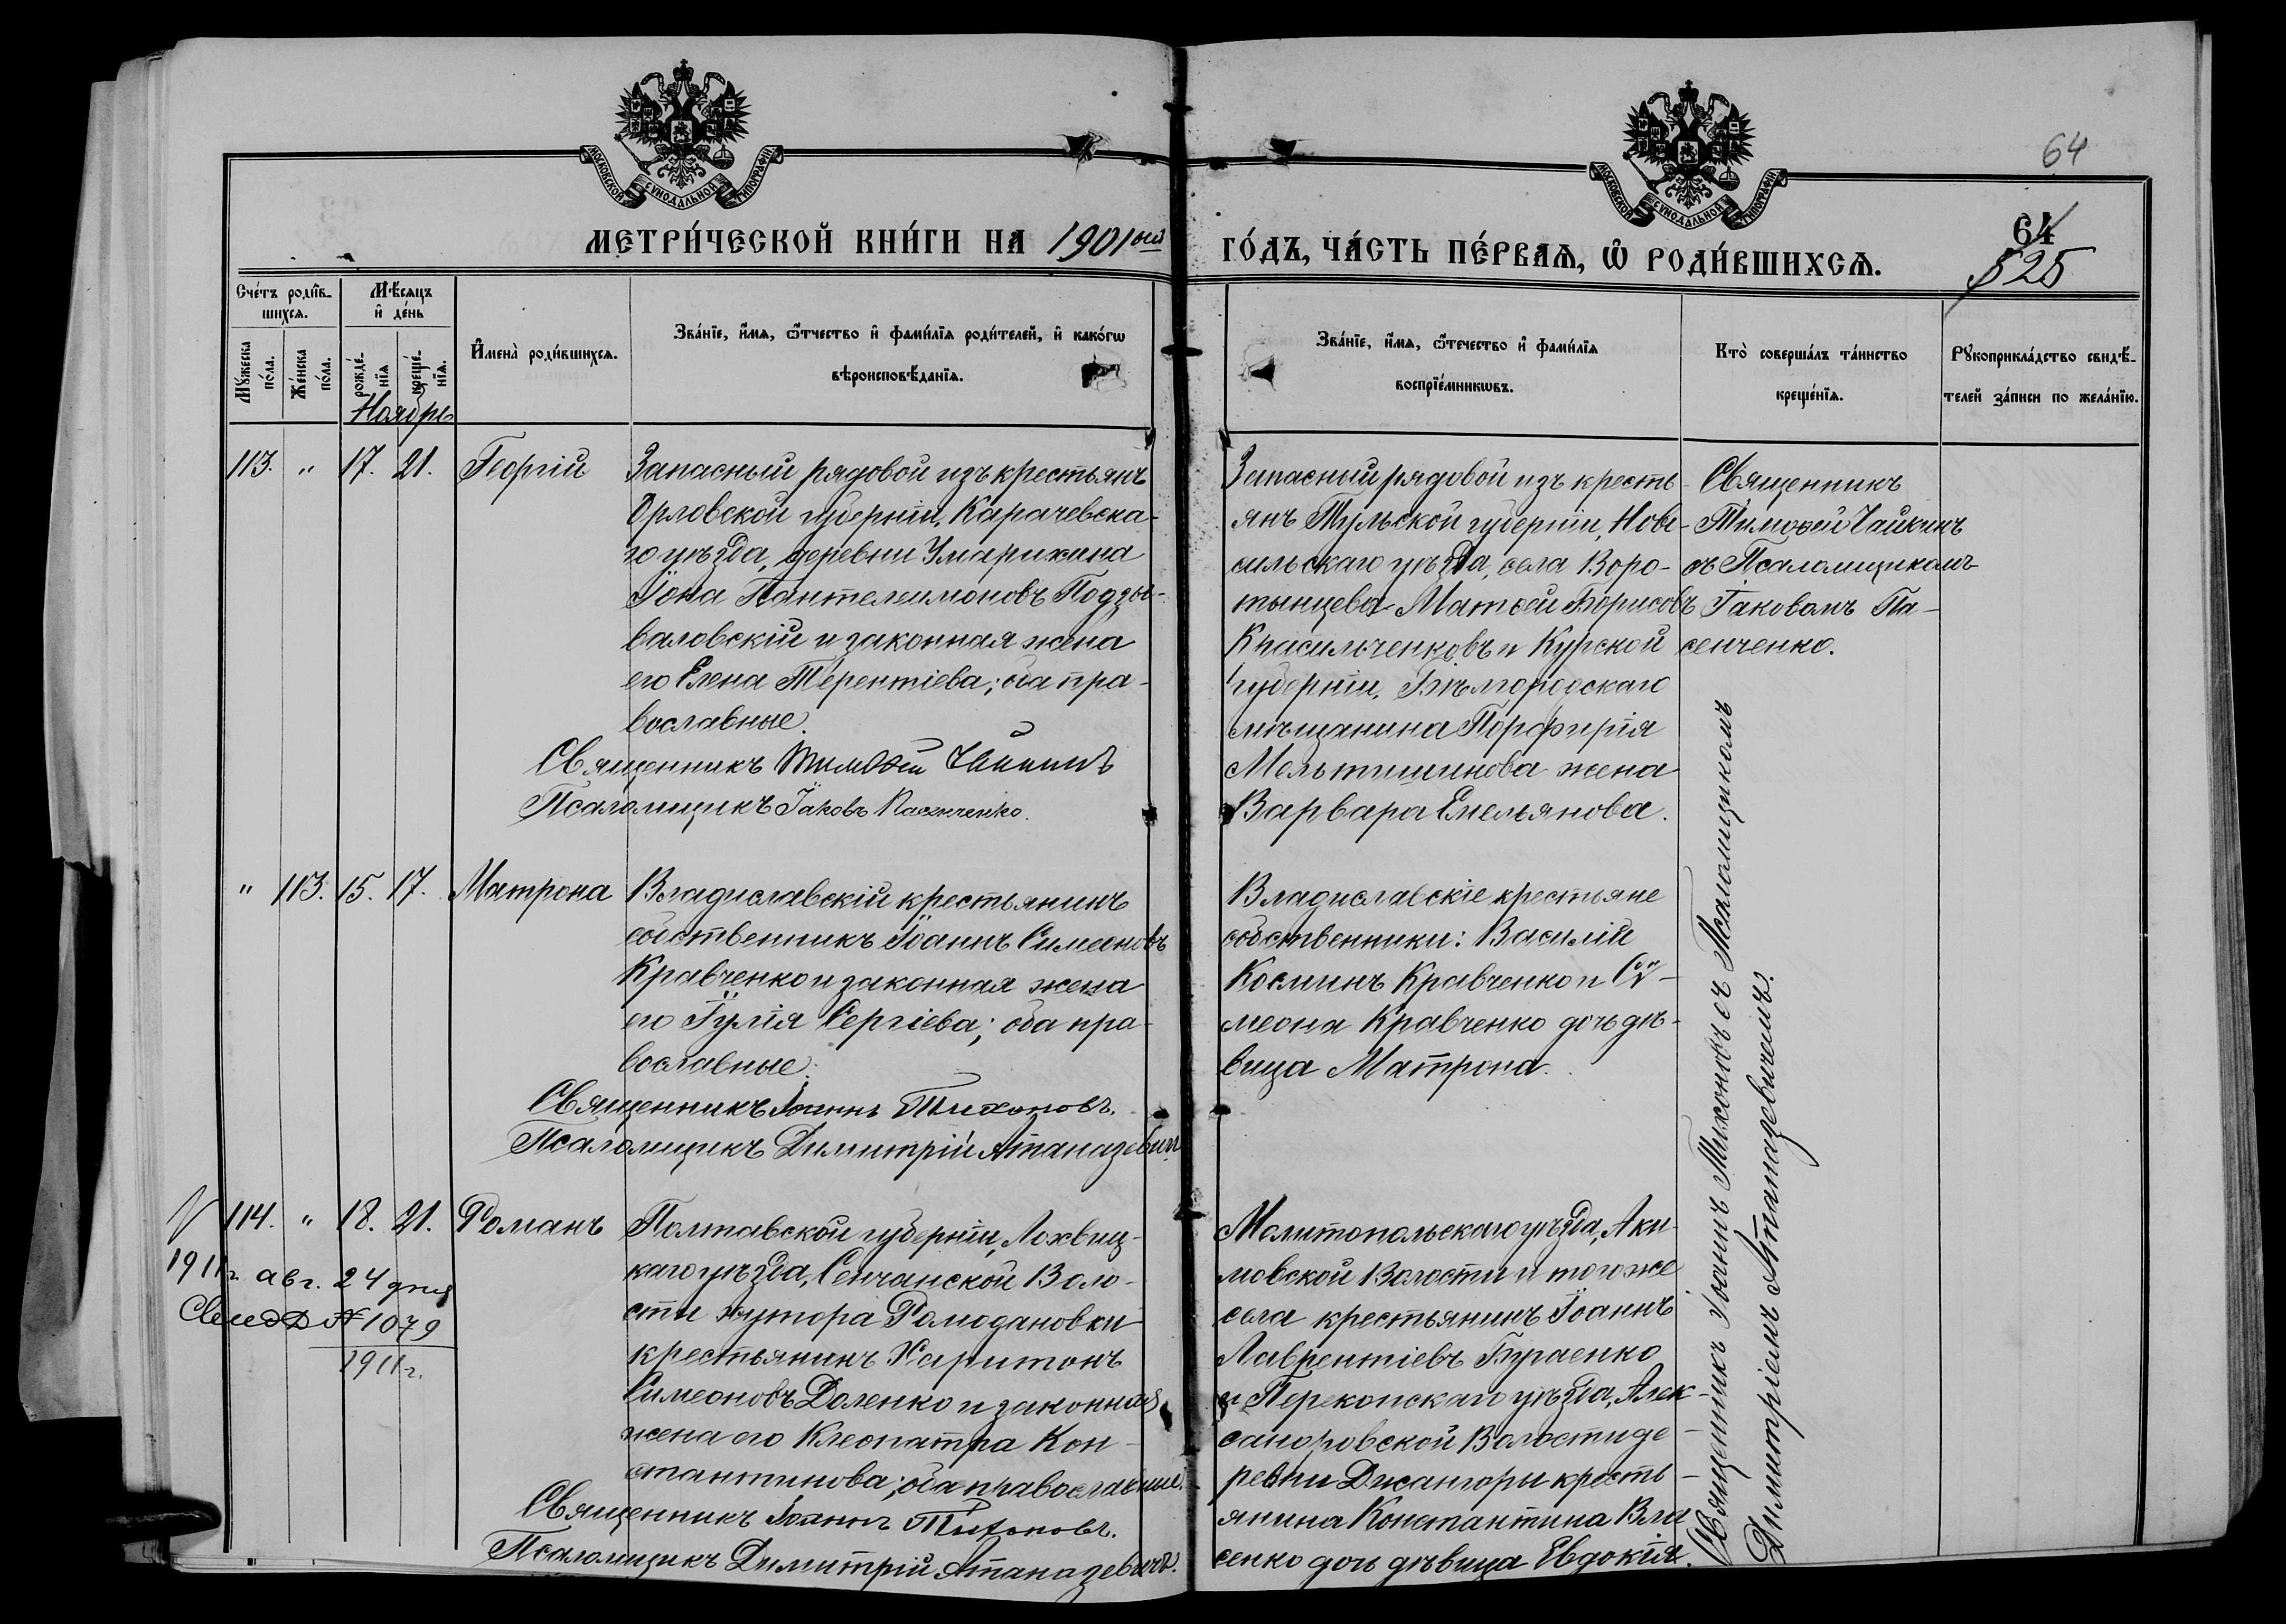 64
МОСКОВСКОЙ СУНОДАЛЬНОЙ ТИПОГРАФІИ
МОСКОВСКОЙ СУНОДАЛЬНОЙ ТИПОГРАФІИ
МЕТРИ́ЧЕСКОЙ КНИ́ГИ НА 1901ый
ГО́ДЪ, ЧА́СТЬ ПЕ́РВАЯ, Ѡ҆ РОДИ́ВШИХСѦ.
64
525
Сче́тъ роди́в-
шихсѧ.
Мꙋ́жеска
по́ла.
Же́нска
по́ла.
Мѣ́сѧцъ
и҆ де́нь
рожде́-
нїѧ
креще́-
нїѧ.
Ноябрь
И҆мена̀ роди́вшихсѧ.
Зва́нїе, и҆́мѧ, ѻ҆́тчество и҆ фами́лїѧ роди́телей, и҆ како́гѡ
вѣроисповѣ́данїѧ.
Зва́нїе, и҆́мѧ, ѻ҆́течество и҆ фами́лїѧ
воспрїе́мникѡвъ.
Кто̀ соверша́лъ та́инство
креще́нїѧ.
Рꙋкоприкла́дство свидѣ́-
телей за́писи по жела́нїю.
113. " 17. 21. Георгій
Запасный рядовой изъ крестьянъ
Орловской губерніи, Карачевска-
го уѣзда, деревни Умарихина
Іона Пантелеимоновъ Подзы-
валовскій и законная жена
его Елена Терентіева; оба пра-
вославные.
Священникъ Тимоѳей Чайкинъ
Псаломщикъ Іаковъ Пасенченко.
Запасный рядовой изъ кресть-
янъ Тульской губерніи, Ново-
сильскаго уѣзда, села Воро-
тынцева Матѳей Борисовъ
Красильченковъ и Курской
губерніи, Бѣлгородскаго
мѣщанина Порфирія
Мельтишинова жена
Варвара Емельянова.
Священникъ
Тимоѳей Чайкинъ
съ Псаломщикомъ
Іаковомъ Па-
сенченко.
" 113. 15. 17. Матрона
Владиславскій крестьянинъ
собственникъ Іоаннъ Симеоновъ
Кравченко и законная жена
его Іулія Сергіева; оба пра-
вославные.
Священникъ Іоаннъ Тихоновъ.
Псаломщикъ Димитрій Атаназевичъ
Владиславскіе крестьяне
собственники: Василій
Косминъ Кравченко и Си-
меона Кравченко дочь дѣ-
вица Матрона.
Священникъ Іоаннъ Тихоновъ съ Псаломщикомъ
Димитріемъ Атаназевичемъ.
114. " 18. 21. Романъ
1911 г. авг. 24 дня
Свид № 1079
1911 г.
Полтавской губерніи, Лохвиц-
каго уѣзда, Сенчанской Воло-
сти хутора Ромодановки
крестьянинъ Харитонъ
Симеоновъ Доленко и законная
жена его Клеопатра Кон-
стантинова; оба православные.
Священникъ Іоаннъ Тихоновъ.
Псаломщикъ Димитрій Атаназевичъ.
Мелитопольскаго уѣзда, Аки-
мовской Волости и того же
села крестьянинъ Іоаннъ
Лаврентіевъ Бураенко
и Перекопскаго уѣзда, Алек-
сандровской Волости де-
ревни Джангоры кресть-
янина Константина Вла-
сенко дочь дѣвица Евдокія.